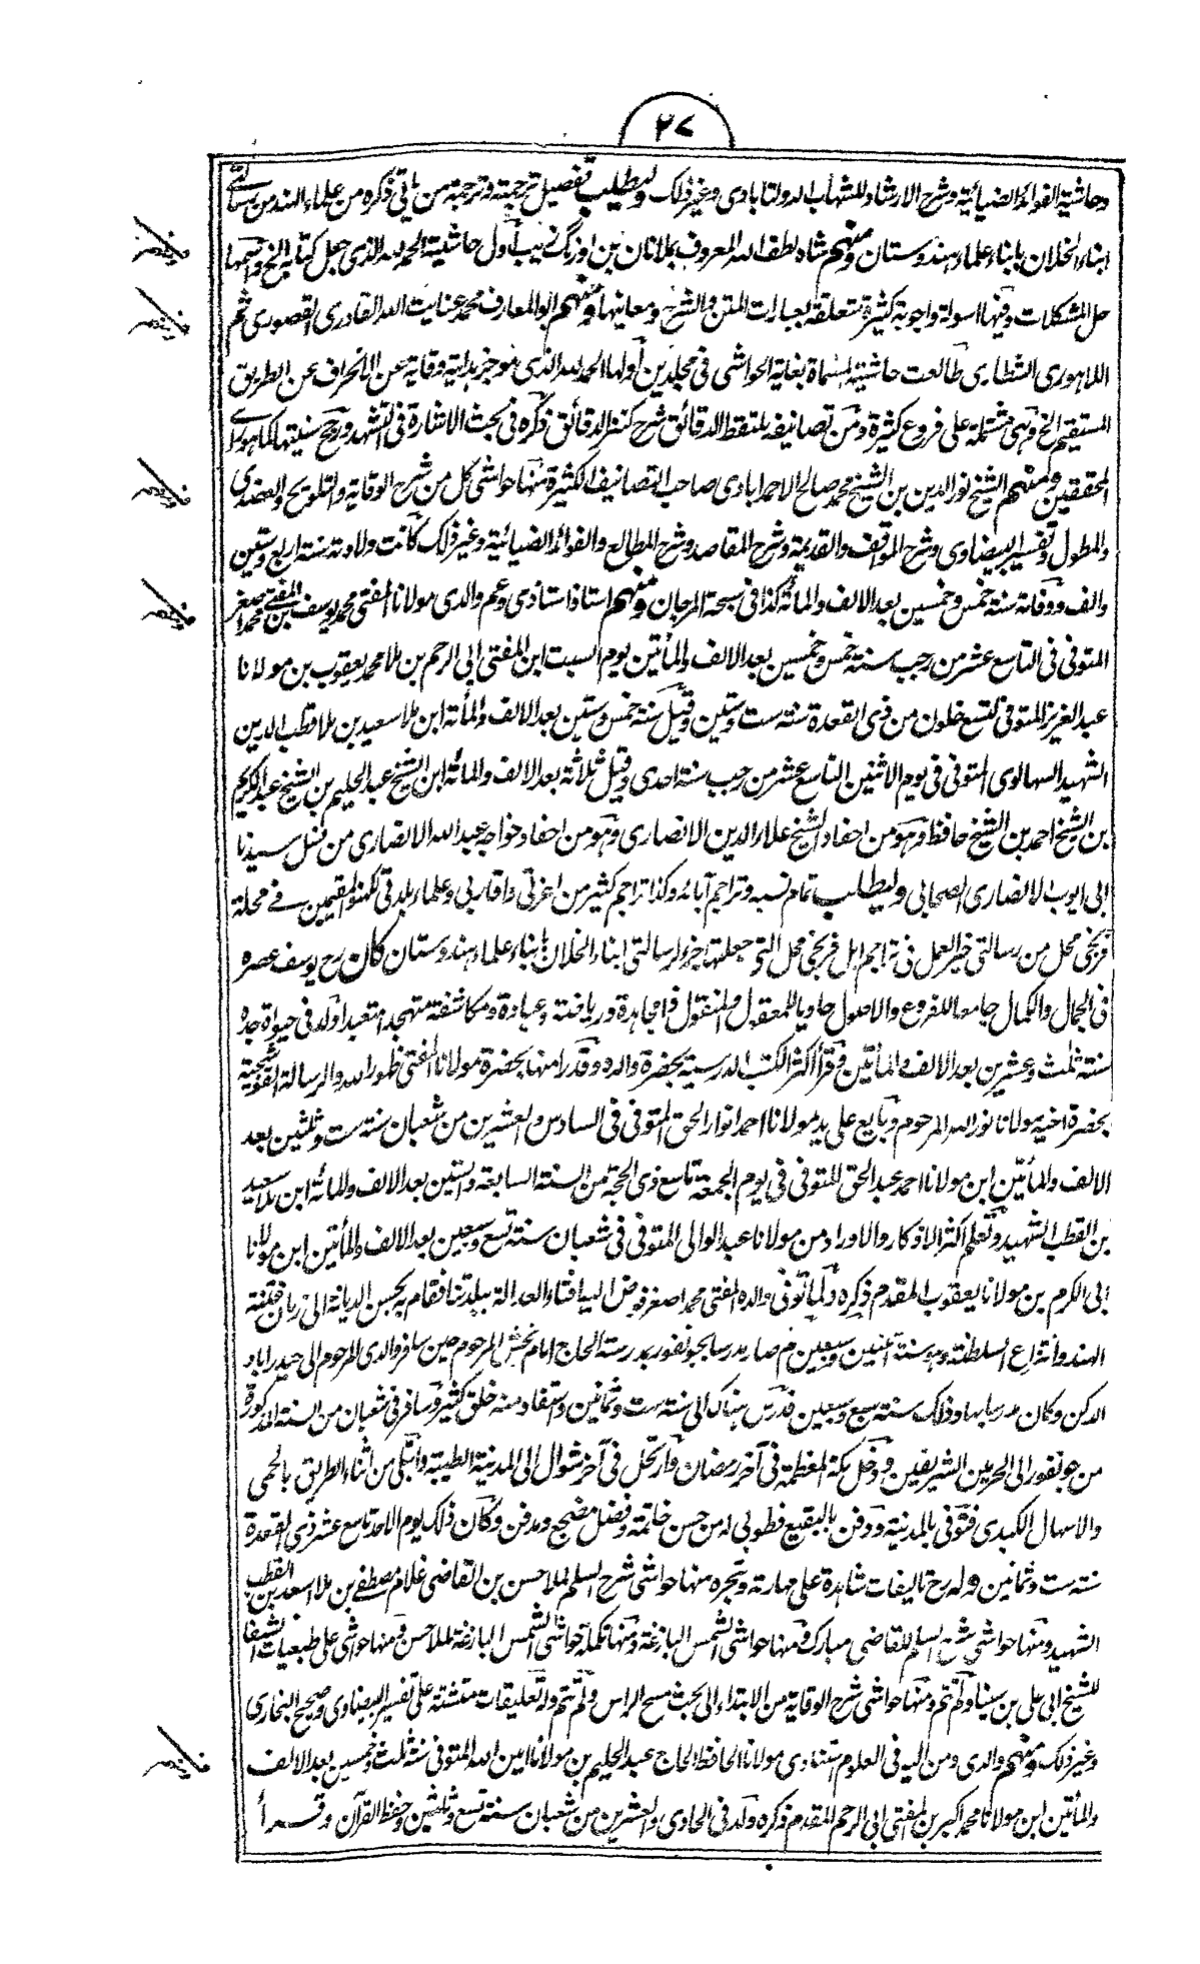 ٢٧
وحاشية الفوائد الضيائية وشرح الارشاد للشهاب الدولتابادى وغير ذلك وليطلب تفصيل ترجمته وترجمة من ياتى ذكره من علماء الهند من رسالتى
ابناء الخلان بابناء علماء هندوستان ومنهم شاه لطف الله المعروف بملانان بن اورنگ زيب اول حاشيته الحمد لله الذى جعل كتابه الخ واسمها
حل المشكلات وفيها اسولة واجوبة كثيرة متعلقة بعبارات المتن والشرح ومعانيها ومنهم ابو المعارف محمد عنايت الله القادرى القصورى ثم
اللاهورى الشطارى طالعت حاشيته المسماة بغاية الحواشى فى مجلدين اولها الحمد لله الذى هو خير بداية وقاية عن الانحراف عن الطريق
المستقيم الخ وهى مشتملة على فروع كثيرة ومن تصانيفه ملتقط الدقائق شرح كنز الدقائق ذكره فى بحث الاشارة فى التشهد ورجح سنيتها كما هو راى
المحققين ومنهم الشيخ نور الدين بن الشيخ محمد صالح الاحمدابادى صاحب التصانيف الكثيرة منها حواشى كل من شرح الوقاية والتلويح والعضدى
والمطول وتفسير البيضاوى وشرح المواقف والقديمة وشرح المقاصد وشرح المطالع والفوائد الضيائية وغير ذلك كانت ولادته سنة اربع وستين
والف ووفاته سنة خمس وخمسين بعد الالف والمائة كذا فى سبحة المرجان ومنهم استاذ استاذى وعم والدى مولانا المفتى محمد يوسف بن المفتى محمد اصغر
المتوفى فى التاسع عشر من رجب سنة خمس وخمسين بعد الالف والمأتين يوم السبت ابن المفتى ابى الرحم بن ملا محمد يعقوب بن مولانا
عبد العزيز المتوفى لتسع خلون من ذى القعدة سنة ست وستين وقيل سنة خمس وستين بعد الالف والمأة ابن ملا سعيد بن ملا قطب الدين
الشهيد السهالوى المتوفى فى يوم الاثنين التاسع عشر من رجب سنة احدى وقيل ثلاثة بعد الالف والمائة ابن الشيخ عبد الحليم بن الشيخ عبد الكريم
بن الشيخ احمد بن الشيخ حافظ وهو من احفاد الشيخ علاء الدين الانصارى وهو من احفاد خواجه عبد الله الانصارى من نسل سيدنا
ابى ايوب الانصارى الصحابى وليطلب تمام نسبه وتراجم آبائه وكذا تراجم كثير من اعزتى واقاربى وعلماء بلدتى لكنو المقيمين فى محلة
فرنجى محل من رسالتى خير العمل فى تراجم اهل فرنجى محل التى جعلتها جزءا لرسالتى ابناء الخلان بابناء علماء هندوستان كان رح يوسف عصره
فى الجمال والكمال جامعا للفروع والاصول حاويا للمعقول والمنقول ذا مجاهدة ورياضة وعبادة ومكاشفة متهجدا متعبدا ولد فى حيوة جده
سنة ثلث وعشرين بعد الالف والمأتين وقرأ اكثر الكتب الدرسية بحضرة والده وقدرا منها بحضرة مولانا المفتى ظهور الله والرسالة القوشجية
بحضرة اخيه مولانا نور الله المرحوم وبايع على يد مولانا احمد انوار الحق المتوفى فى السادس والعشرين من شعبان سنة ست وثلثين بعد
الالف والمأتين ابن مولانا احمد عبد الحق المتوفى فى يوم الجمعة تاسع ذى الحجة من السنة السابعة والستين بعد الالف والمائة ابن ملا سعيد
بن القطب الشهيد وتعلم اكثر الاذكار والاوراد من مولانا عبد الوالى المتوفى فى شعبان سنة تسع وسبعين بعد الالف والمأتين ابن مولانا
ابى الكرم بن مولانا يعقوب المقدم ذكره ولما توفى والده المفتى محمد اصغر فوض اليه افتاء العدالة ببلدتنا فقام به بحسن الديانة الى زمان فتنة
الهند وانتزاع السلطنة وهو سنة اثنين وسبعين ثم صار مدرسا بجونفور بمدرسة الحاج امام بخش المرحوم حين سافر والدى المرحوم الى حيدراباد
الدكن وكان مدرسا بها وذلك سنة سبع وسبعين فدرس هناك الى سنة ست وثمانين واستفاد منه خلق كثير وسافر فى شعبان من السنة المذكورة
من جونفور الى الحرمين الشريفين ودخل بمكة المعظمة فى آخر رمضان وارتحل فى آخر شوال الى المدينة الطيبة وابتلى من اثناء الطريق بالحمى
والاسهال الكبدى فتوفى بالمدينة ودفن بالبقيع فطوبى له من حسن خاتمة وفضل مضجع ومدفن وكان ذلك يوم الاحد تاسع عشر ذى القعدة
سنة ست وثمانين وله رح تاليفات شاهدة على مهارته وتبحره منها حواشى شرح السلم لملا حسن بن القاضى غلام مصطفى بن ملا اسعد بن القطب
الشهيد ومنها حواشى شرح السلم للقاضى مبارك ومنها حواشى الشمس البازغة ومنها تكملة حواشى الشمس البازغة لملا حسن ومنها حواشى على طبعيات الشفا
للشيخ ابى على بن سينا ولم تتم ومنها حواشى شرح الوقاية من الابتداء الى بحث مسح الراس ولم تتم وله تعليقات متشتة على تفسير البيضاوى وصحيح البخارى
وغير ذلك ومنهم والدى ومن اليه فى العلوم استنادى مولانا الحافظ الحاج عبد الحليم بن مولانا امين الله المتوفى سنة ثلث وخمسين بعد الالف
والمأتين ابن مولانا محمد اكبر بن المفتى ابى الرحم المقدم ذكره ولد فى الحادى والعشرين من شعبان سنة تسع وثلثين وحفظ القرآن وقرأ